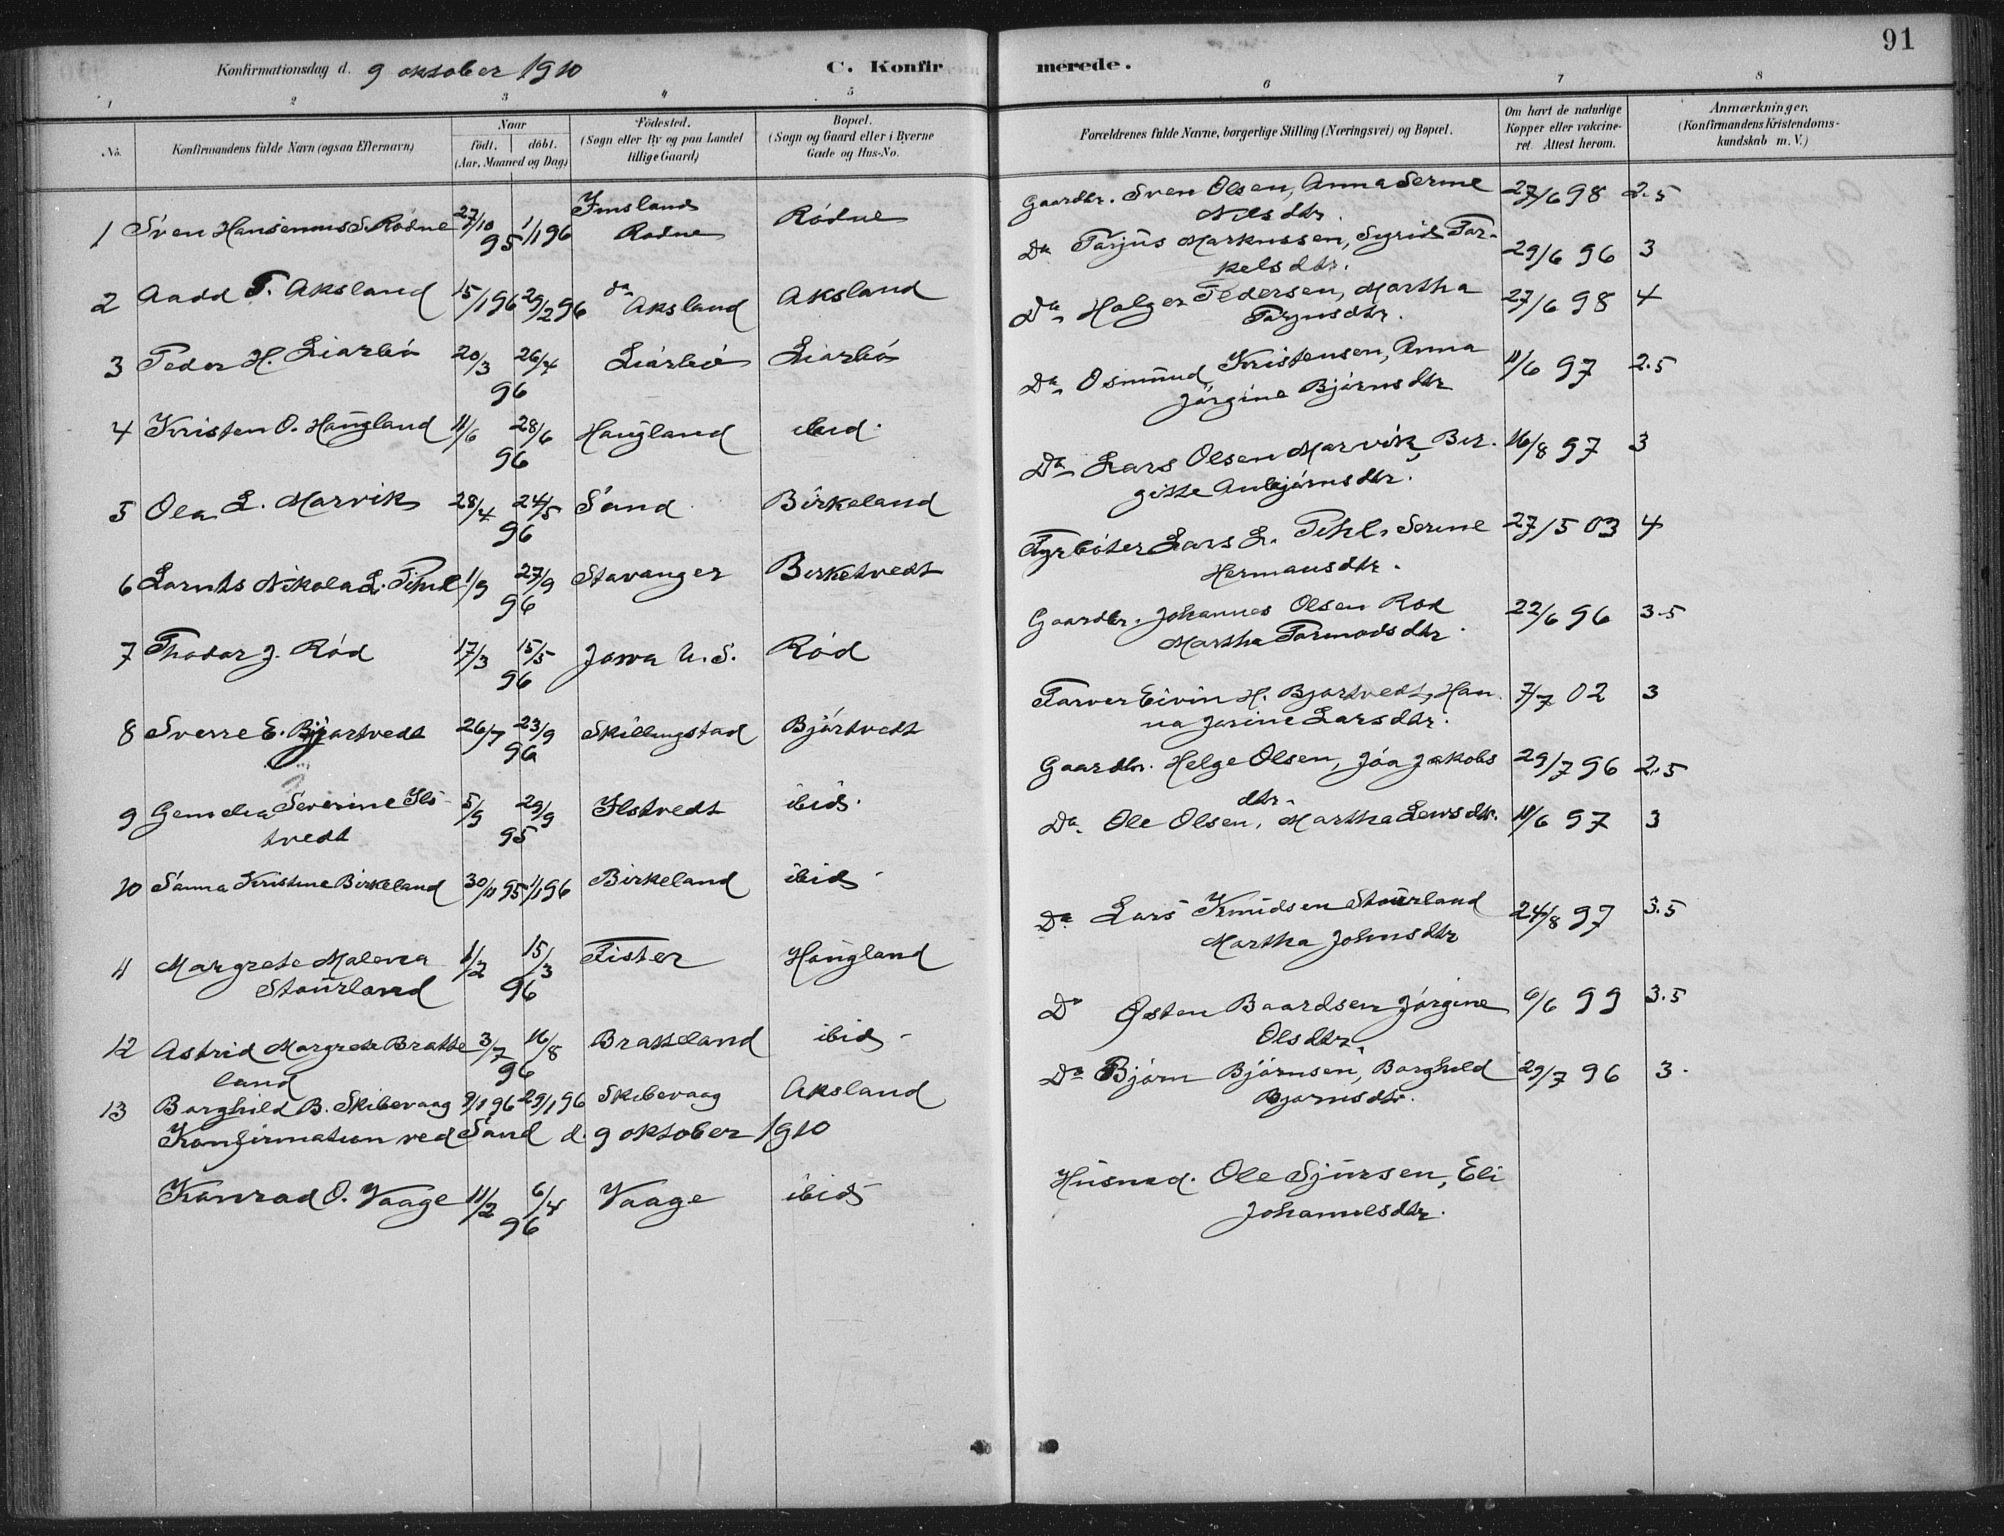 91
Konfirmationsdag d. 9 oktober 1910
C. Konfirmerede.
1 2 3 4 5 6 7 8
No.
Konfirmandens fulde Navn (ogsaa Efternavn)
Naar
födt. döbt.
(Aar, Maaned og Dag)
Födested.
(Sogn eller By og paa Landet
tillige Gaard)
Bopæl.
(Sogn og Gaard eller i Byerne
Gade og Hus-No.
Forældrenes fulde Navne, borgerlige Stilling (Næringsvei) og Bopæl.
Om havt de naturlige
Kopper eller vakcine-
ret. Attest herom.
Anmærkninger.
(Konfirmandens Kristendoms-
kundskab m. V.)
1 Sven Hansenius S. Rødne 27/10 95 1/1 96 Imsland Rødne Rødne Gaardbr. Sven Olsen, Anna Serine Nilsdtr. 27/6 98 2.5
2 Aadd T. Aksland 15/1 96 29/2 96 da Aksland Aksland Do Tarjus Markussen, Syrid Tor-
kelsdtr. 29/6 96 3
3 Peder H. Liarbø 20/3 26/4 96 Liarbø Liarbø Do Holger Pedersen, Martha
Tarjusdtr. 27/6 98 4
4 Kristen O. Haugland 11/6 28/6 96 Haugland ibid. Do Osmund Kristensen, Anna
Jørgine Bjørnsdtr 11/6 97 2.5
5 Ola L. Marvik 28/4 24/5 96 Sand Birkeland Do Lars Olsen Marvik, Bir-
gitte Anbjørnsdtr. 16/8 97 3
6 Larnts Nikolai L. Pihl 1/9 27/9 96 Stavanger Birketvedt Fyrbøter Lars L. Pihl, Serine
Hermansdtr. 27/5 03 4
7 Thodor J. Rød 17/3 15/5 96 Jowa U.S. Rød Gaardbr. Johannes Olsen Rød
Martha Tormodsdtr. 22/6 96 3.5
8 Sverre E. Bjørtvedt 26/7 23/9 96 Skillingstad Bjørtvedt Farver Eivin H. Bjørtvedt, Han-
na Jorine Larsdtr. 7/7 02 3
9 Severine Ils-
tvedt 5/9 29/9 95 Ilstvedt ibid. Gaardbr. Helge Olsen, Jóa Jakobs
dtr. 29/7 96 2.5
10 Sanna Kristine Birkeland 30/11 95 1/1 96 Birkeland ibid. Do. Ole Olsen, Martha Larsdtr. 11/6 97 3
11 Margrete Malena
Staurland 1/2 15/3 96 Fister Haugland Do Lars Knudsen Staurland
Martha Johnsdtr 24/8 97 3.5
12 Astrid Margrete Bratte
land 3/7 16/8 96 Bratteland ibid. Do Østen Baardsen Jørgine
Olsdtr. 6/6 99 3.5
13 Borghild B. Skibevaag 9/1 96 29/1 96 Skibevaag Aksland Do Bjørn Bjørnsen, Borghild
Bjørnsdtr. 29/7 96 3.
Konfirmation ved Sand d. 9 oktober 1910
Konrad O. Vaage 11/2 6/4 96 Vaage ibid Husmd. Ole Sjursen, Eli
Johannesdtr.